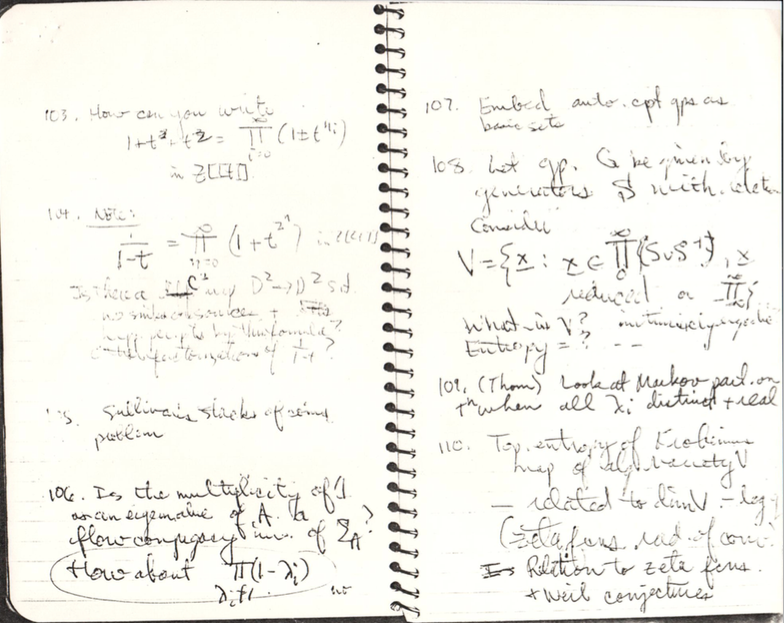 103. How can you write
1+t²+t² = ∏ (1±t^{n_i})
i=0
in Z[[t]]
104. NOTE:
1/(1-t) = ∏ (1+t^{2^n})
n=0
Is there a C¹ map D²→D² s.t.
no sinks or sources +
by this formula?
factorization of 1/(1-t)?
Sullivan's stacks of
problem
106. Is the multiplicity of 1
as an eigenvalue of A a
flow conjugacy inv. of Σ_A?
How about ∏(1-λi)
λi≠1
107. Embed auto. cpt gps as
basic sets
108. Let gp. G be given by
generators S with
Consider
V = {x : x ∈ ∏ (S∪S⁻¹), x
reduced or ∏}
What is V? intrinsically ergodic
Entropy = ? --
109. (Thom) Look at Markov part. on
Tⁿ when all λi distinct + real
110. Top. entropy of Frobenius
map of alg. variety V
— related to dim V · log
(zeta fcns, rad. of conv.
Relation to zeta fcns.
+ Weil conjectures